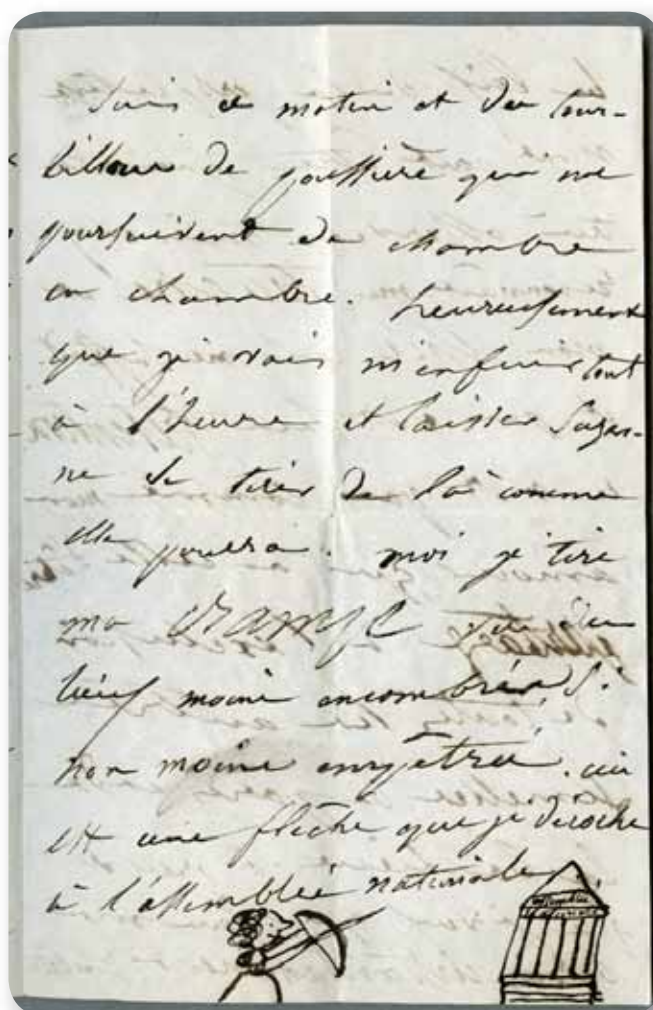 suis ce matin et des tour-
billons de poussière qui me
poursuivent de chambre
en chambre. heureusement
que je vais m'enfuir tout
à l'heure et laisser Suzan-
ne se tirer de là comme
elle pourra. moi je tire
ma
lieux moins encombrés, si
non moins empêtrés. ceci
est une flèche que je décoche
à l'assemblée nationale.
assemblée
nationale